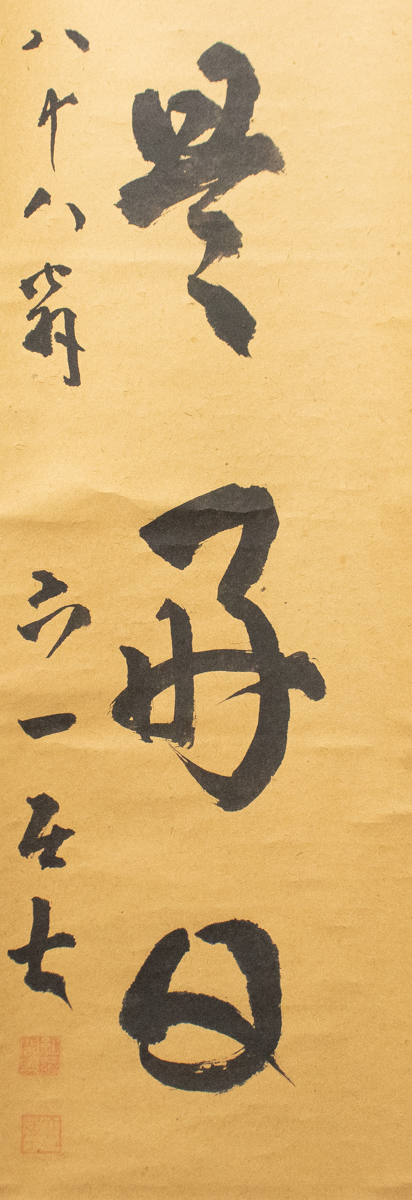 是好日
八十八翁 六一居士